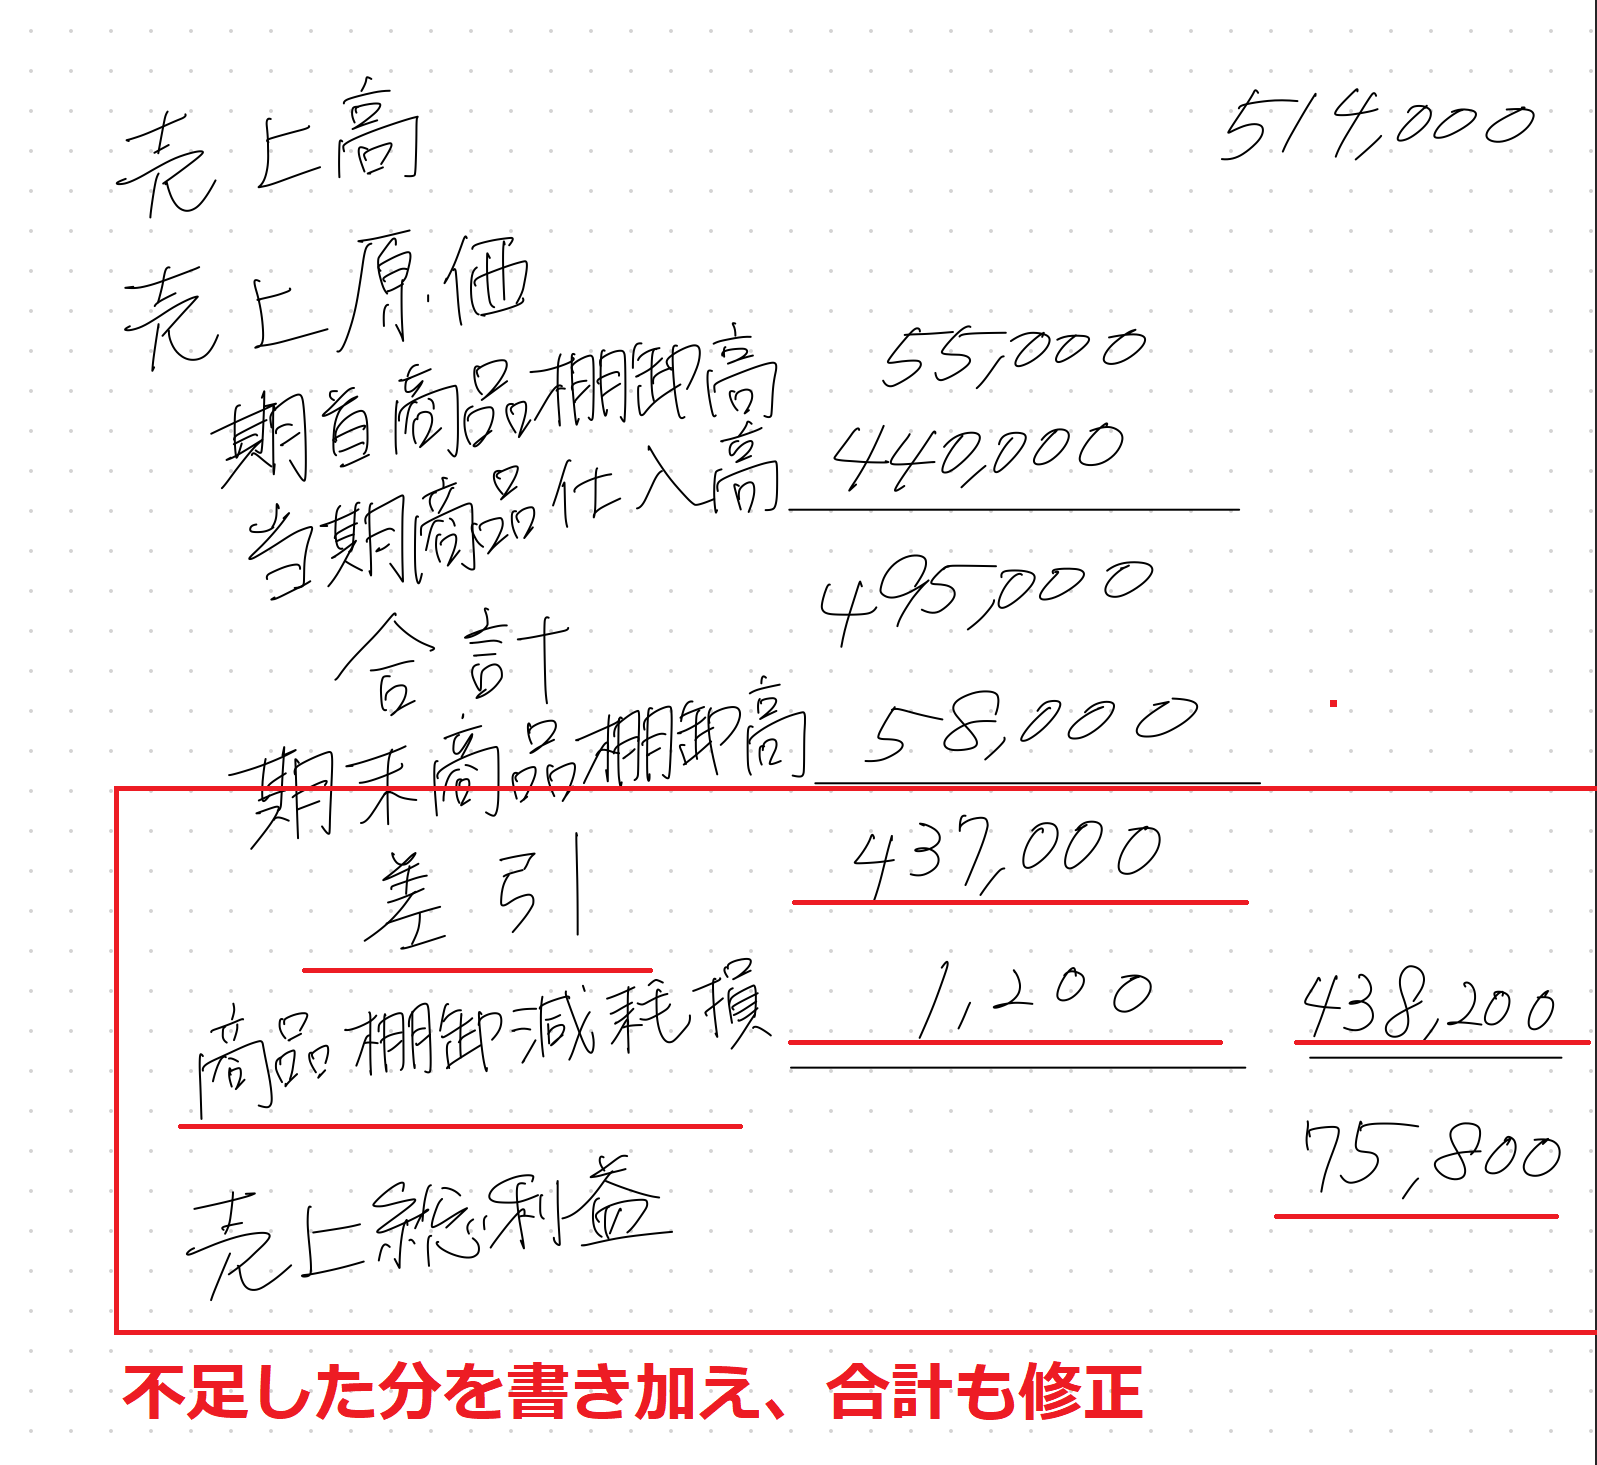 売上高 514,000
売上原価
期首商品棚卸高 55,000
当期商品仕入高 440,000
合計 495,000
期末商品棚卸高 58,000
差引 437,000
商品棚卸減耗損 1,200 438,200
売上総利益 75,800
不足した分を書き加え、合計も修正